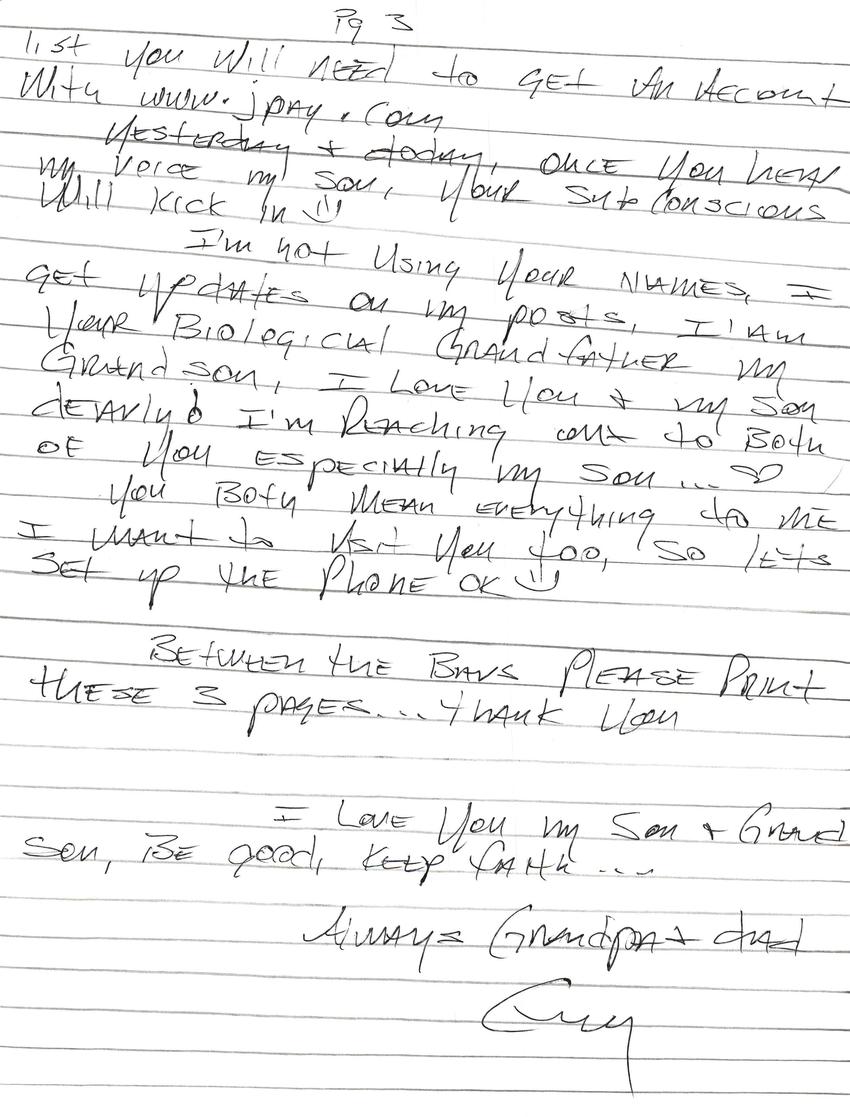 Pg 3
list you will need to get an Account
With www.jpay.com
Yesterday + today, once you hear
my voice my son, your subconscious
Will kick in
I'm not using your names, I
get updates on my posts, I'am
your Biologicial Grandfather my
Grandson, I Love you + my son
dearly! I'm Reaching out to Both
of you especially my son...
You Both mean everything to me
I want to visit you too, so let's
set up the Phone ok
Between the Bars Please Print
these 3 pages... thank you
I Love you my Son + Grand
son, Be good, keep faith ....
Always Grandpa + dad